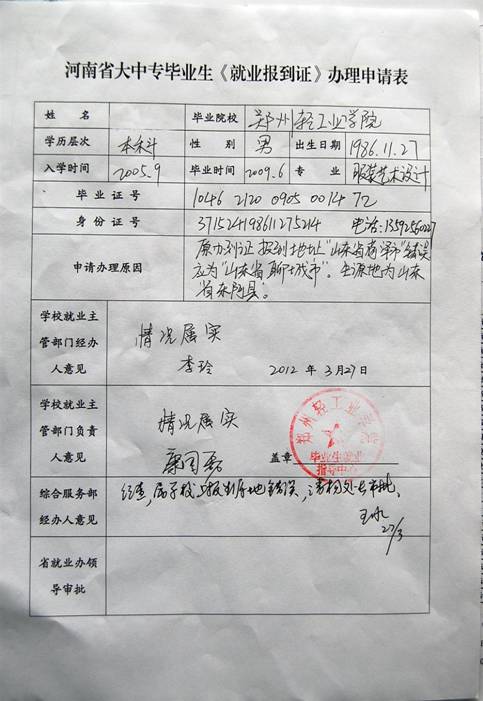 河南省大中专毕业生《就业报到证》办理申请表
姓 名 毕业院校 郑州轻工业学院
学历层次 本科 性 别 男 出生日期 1986.11.27
入学时间 2005.9 毕业时间 2009.6 专 业 服装艺术设计
毕 业 证 号 1046 2120 0905 0014 72
身 份 证 号 371524198611275214 电话:13592560227
申请办理原因
原办到证报到地址“山东省菏泽市”错误
应为“山东省聊城市”。生源地为山东
省东阿县。
学校就业主
管部门经办
人意见
情况属实
李玲 2012 年 3月27日
学校就业主
管部门负责
人意见
情况属实
盖章
郑州轻工业学院
毕业生就业
指导中心
综合服务部
经办人意见
经查,属学校上报生源地错误,请 处长审批。
王冰
27/3
省就业办领
导审批